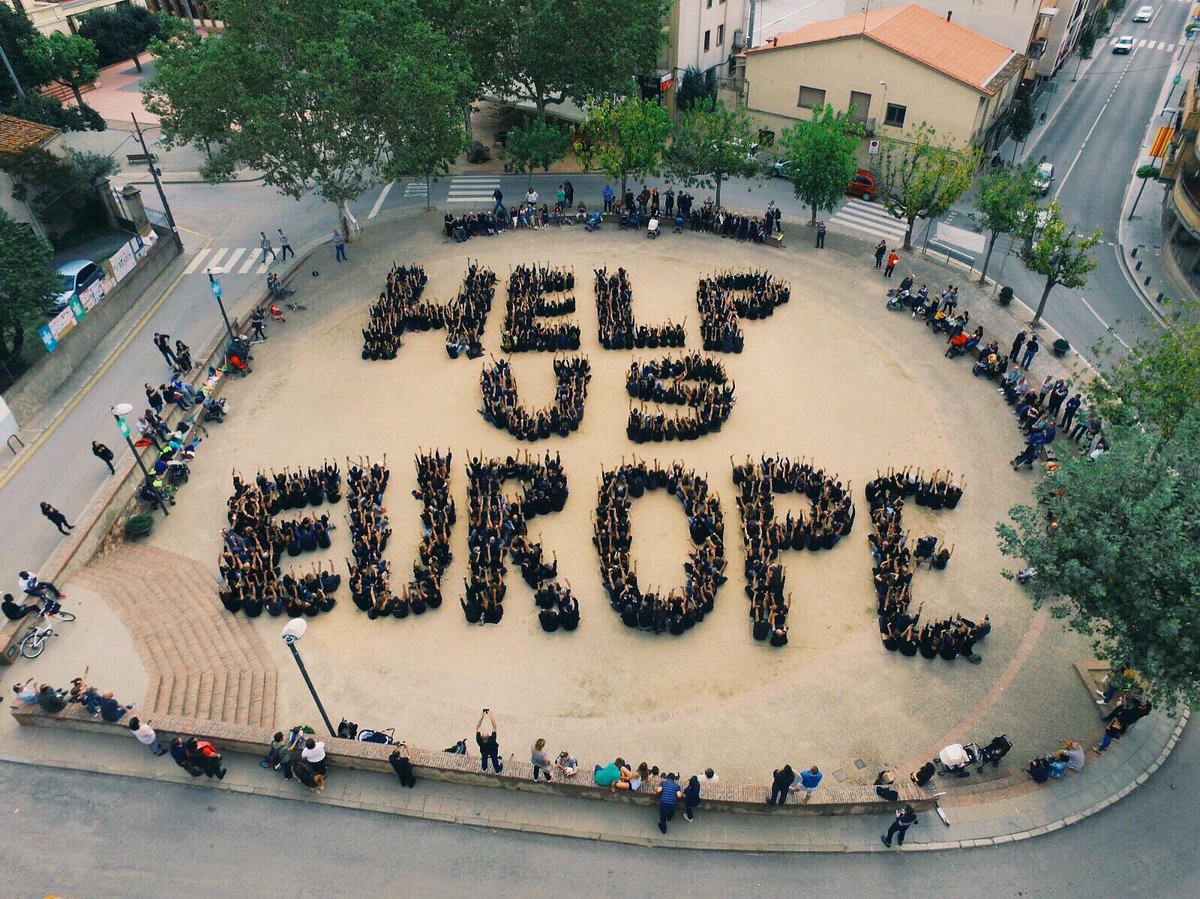 HELP
US
EUROPE